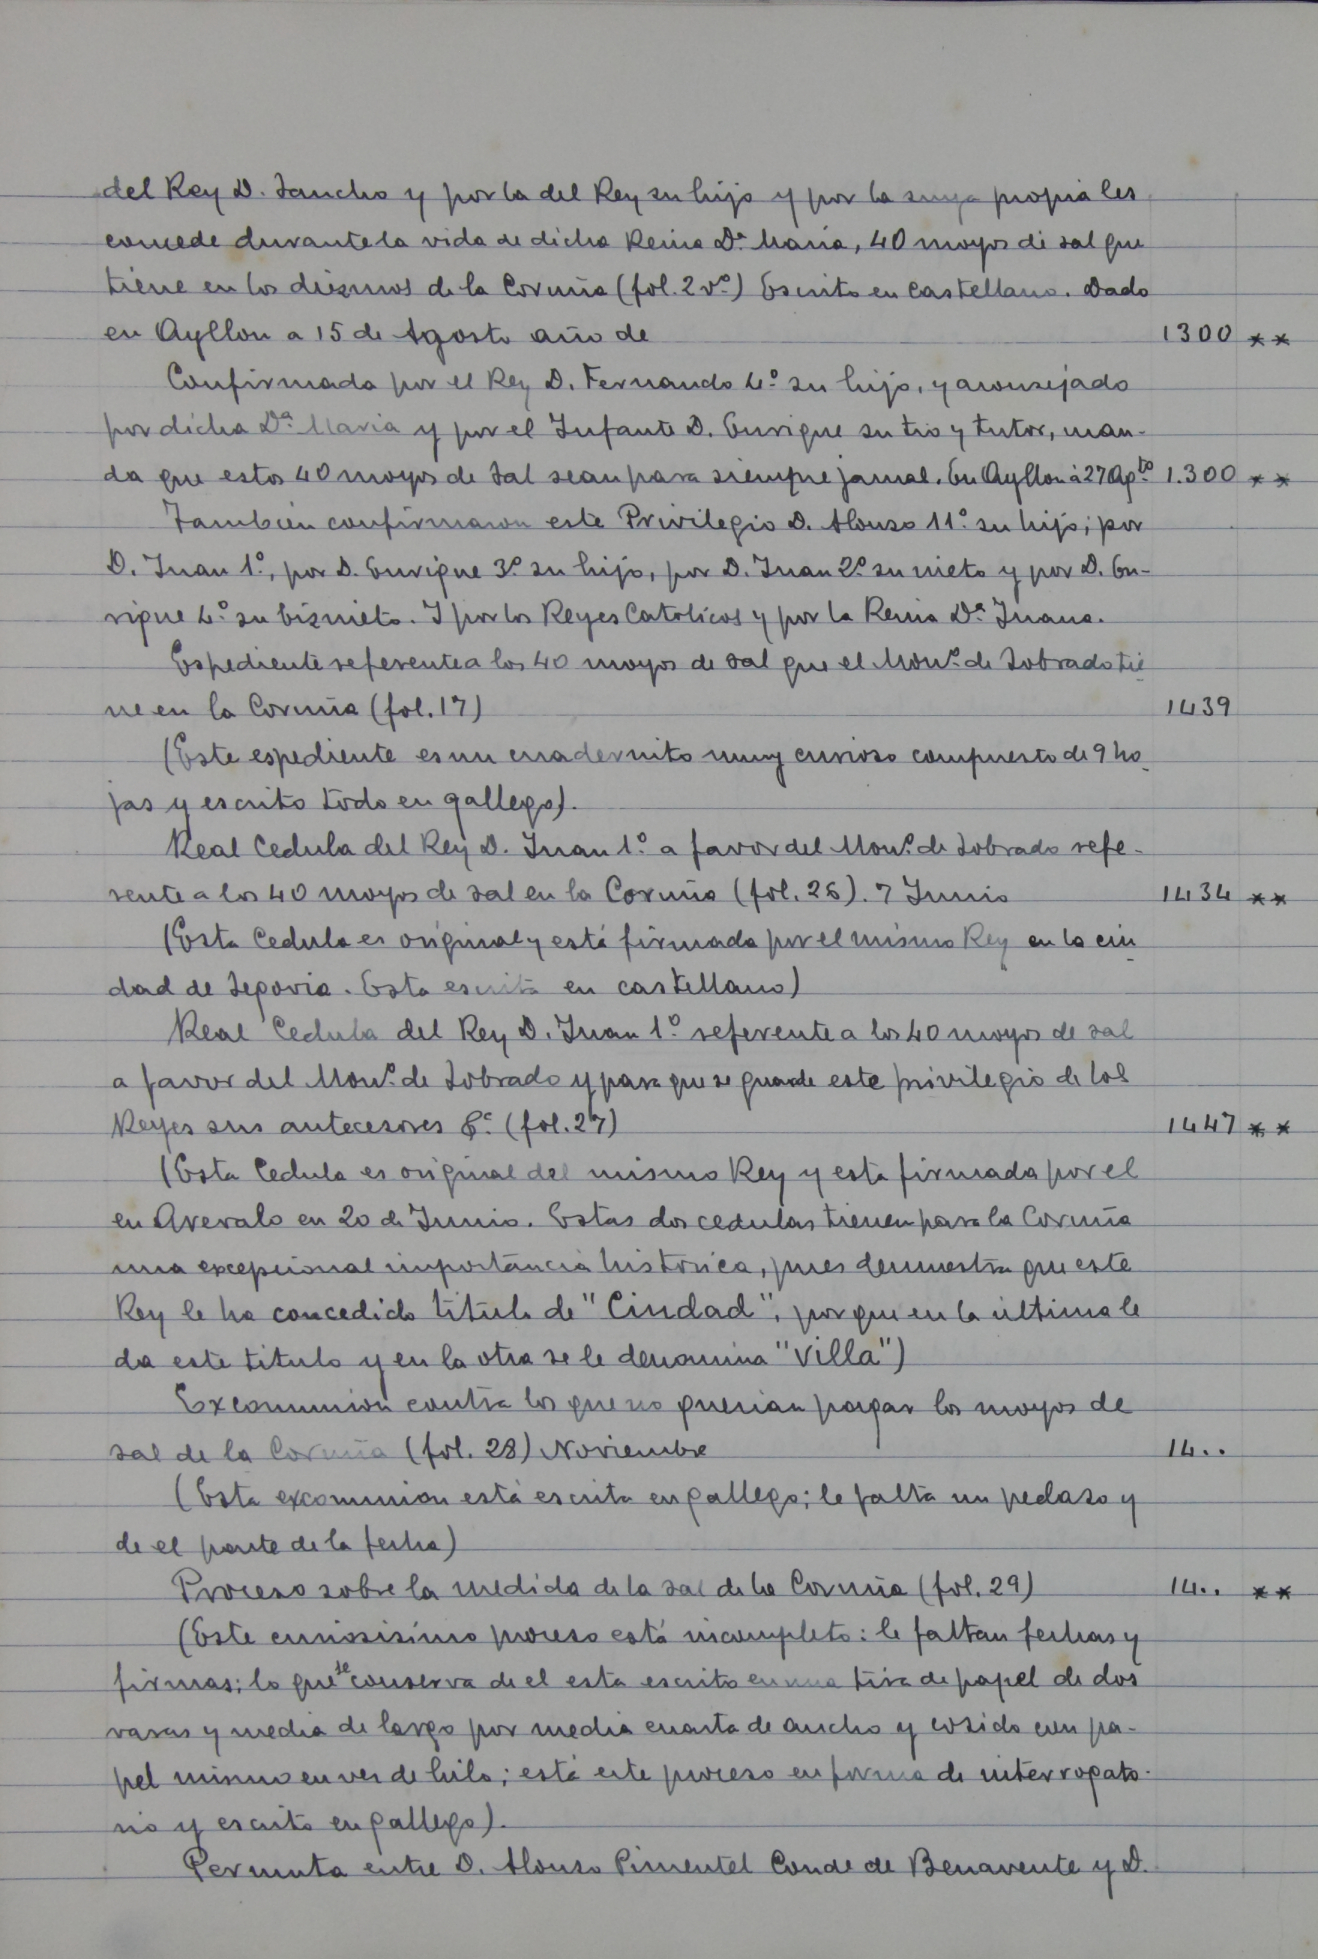 del Rey D. Sancho y por la del Rey su hijo y por la suya propia les
concede durante la vida de dicha Reina Dª Maria, 40 moyos de sal que
tiene en los diezmos de la Coruña (fol. 2 vº) Escrito en castellano. Dado
en Ayllon a 15 de Agosto año de 1300 **
Confirmada por el Rey D. Fernando 4º su hijo, y aconsejado
por dicha Dª Maria y por el Infante D. Enrique su tio y tutor, man-
da que estos 40 moyos de sal sean para siempre jamas. En Ayllon à 27 Agto 1.300 **
Tambien confirmaron este Privilegio D. Alonso 11º su hijo; por
D. Juan 1º, por D. Enrique 3º su hijo, por D. Juan 2º su nieto y por D. En-
rique 4º su biznieto. Y por los Reyes Catolicos y por la Reina Dª Juana.
Espediente referente a los 40 moyos de sal que el Monº de Sobrado tie
ne en la Coruña (fol. 17) 1439
(Este espediente es un cuadernito muy curioso compuesto de 9 ho
jas y escrito todo en gallego).
Real Cedula del Rey D. Juan 1º a favor del Monº de Sobrado refe-
rente a los 40 moyos de sal en la Coruña (fol. 26). 7 Junio 1434 **
(Esta Cedula es original y está firmada por el mismo Rey en la ciu
dad de Segovia. Esta escrita en castellano)
Real Cedula del Rey D. Juan 1º referente a los 40 moyos de sal
a favor del Monº de Sobrado y para que se guarde este privilegio de los
Reyes sus antecesores &c (fol. 27) 1447 **
(Esta Cedula es original del mismo Rey y esta firmada por el
en Arevalo en 20 de Junio. Estas dos cedulas tienen para la Coruña
una excepcional importancia historica, pues demuestra que este
Rey le ha concedido titulo de "Ciudad", porque en la ultima le
da este titulo y en la otra se le denomina "Villa")
Excomunion contra los que no querian pagar los moyos de
sal de la Coruña (fol. 28) Noviembre 14..
(Esta excomunion está escrita en gallego; le falta un pedaso y
de el parte de la fecha)
Proceso sobre la medida de la sal de la Coruña (fol. 29) 14.. **
(Este curiosisimo proceso está incompleto: le faltan fechas y
firmas; lo que se conserva de el esta escrito en una tira de papel de dos
varas y media de largo por media cuarta de ancho y cosido con pa-
pel mismo en ves de hilo; está este proceso en forma de interrogato-
rio y escrito en gallego).
Permuta entre D. Alonso Pimentel Conde de Benavente y D.